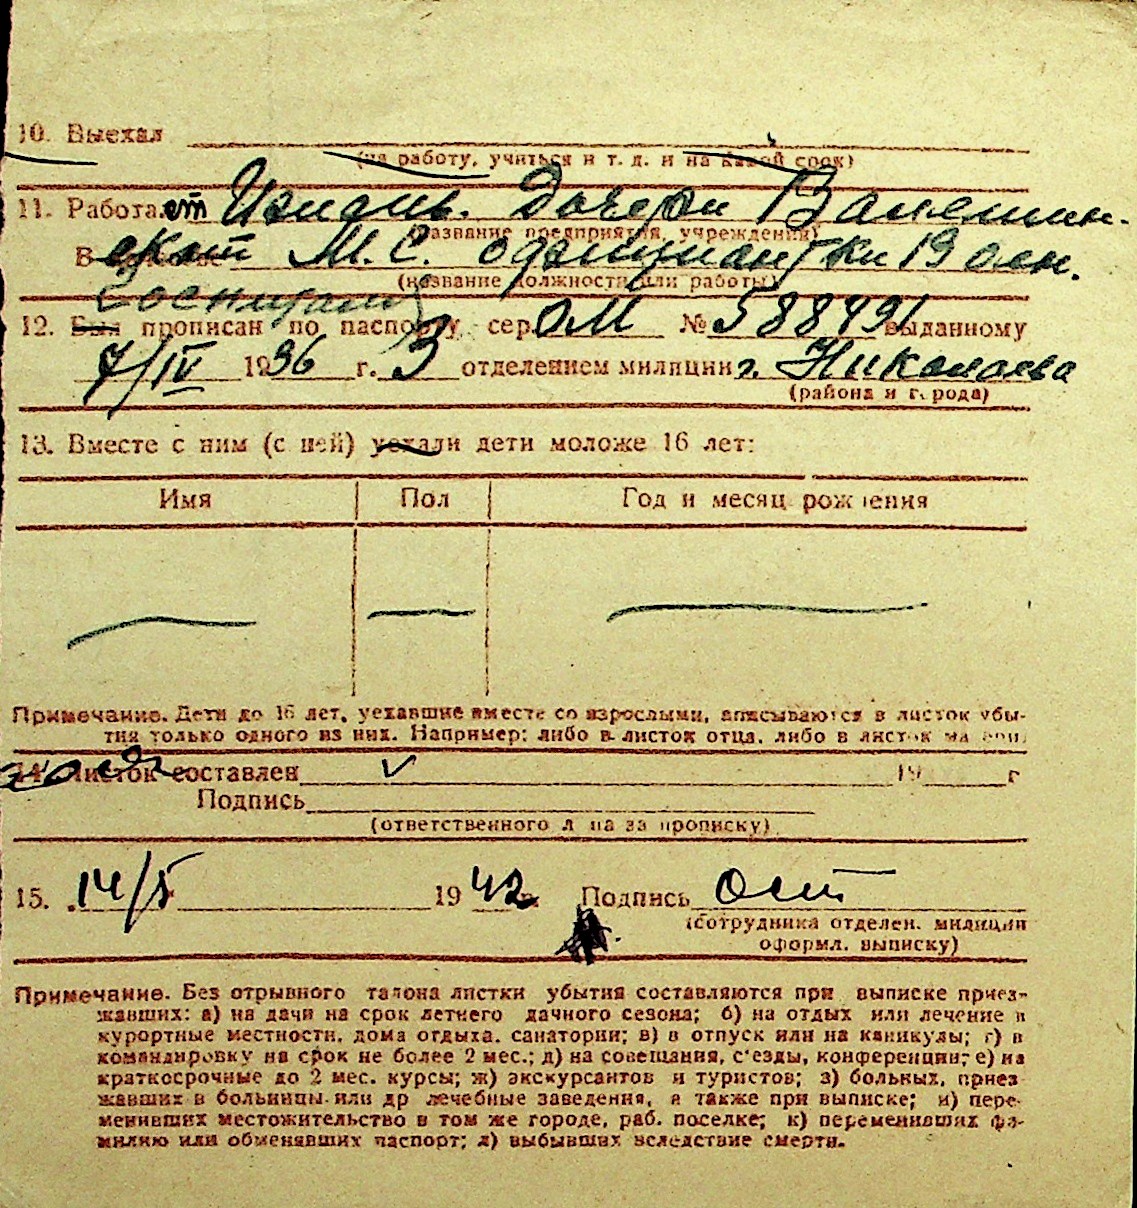 10. Выехал
(на работу, учиться и т. д. и на какой срок)
11. Работает Иждив. дочери
(название предприятия, учреждения)
М. С. официантки 19
(название должности или работы)
госпиталя
12. Был прописан по паспорту сер. ОМ № 588491 выданному
7/IV 1936 г. 3 отделением милиции г. Николаева
(района и города)
13. Вместе с ним (с ней) уехали дети моложе 16 лет:
Имя Пол Год и месяц рождения
Примечание. Дети до 16 лет, уехавшие вместе со взрослыми, вписываются в листок убы-
тия только одного из них. Например: либо в листок отца, либо в листок
14. Листок составлен 19 г
Подпись
(ответственного лица за прописку)
15. 14/5 1942 г. Подпись
(сотрудника отделен. милиции
оформл. выписку)
Примечание. Без отрывного талона листки убытия составляются при выписке приез-
жавших: а) на дачи на срок летнего дачного сезона; б) на отдых или лечение в
курортные местности, дома отдыха, санатории; в) в отпуск или на каникулы; г) в
командировку на срок не более 2 мес.; д) на совещания, с'езды, конференции; е) на
краткосрочные до 2 мес. курсы; ж) экскурсантов и туристов; з) больных, приез
жавших в больницы или др лечебные заведения, а также при выписке; и) пере-
менивших местожительство в том же городе, раб. поселке; к) переменивших фа-
милию или обменявших паспорт; л) выбывших вследствие смерти.